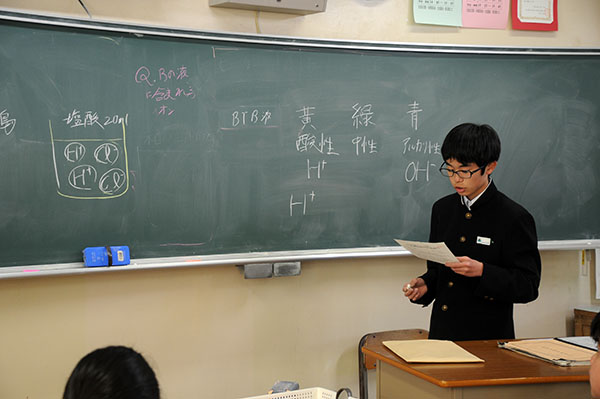 塩酸 20ml
H⁺ Cl⁻
H⁺ Cl⁻
Q. Bの液
に含まれる
イオン
BTB液 黄 緑 青
酸性 中性 アルカリ性
H⁺ OH⁻
H⁺